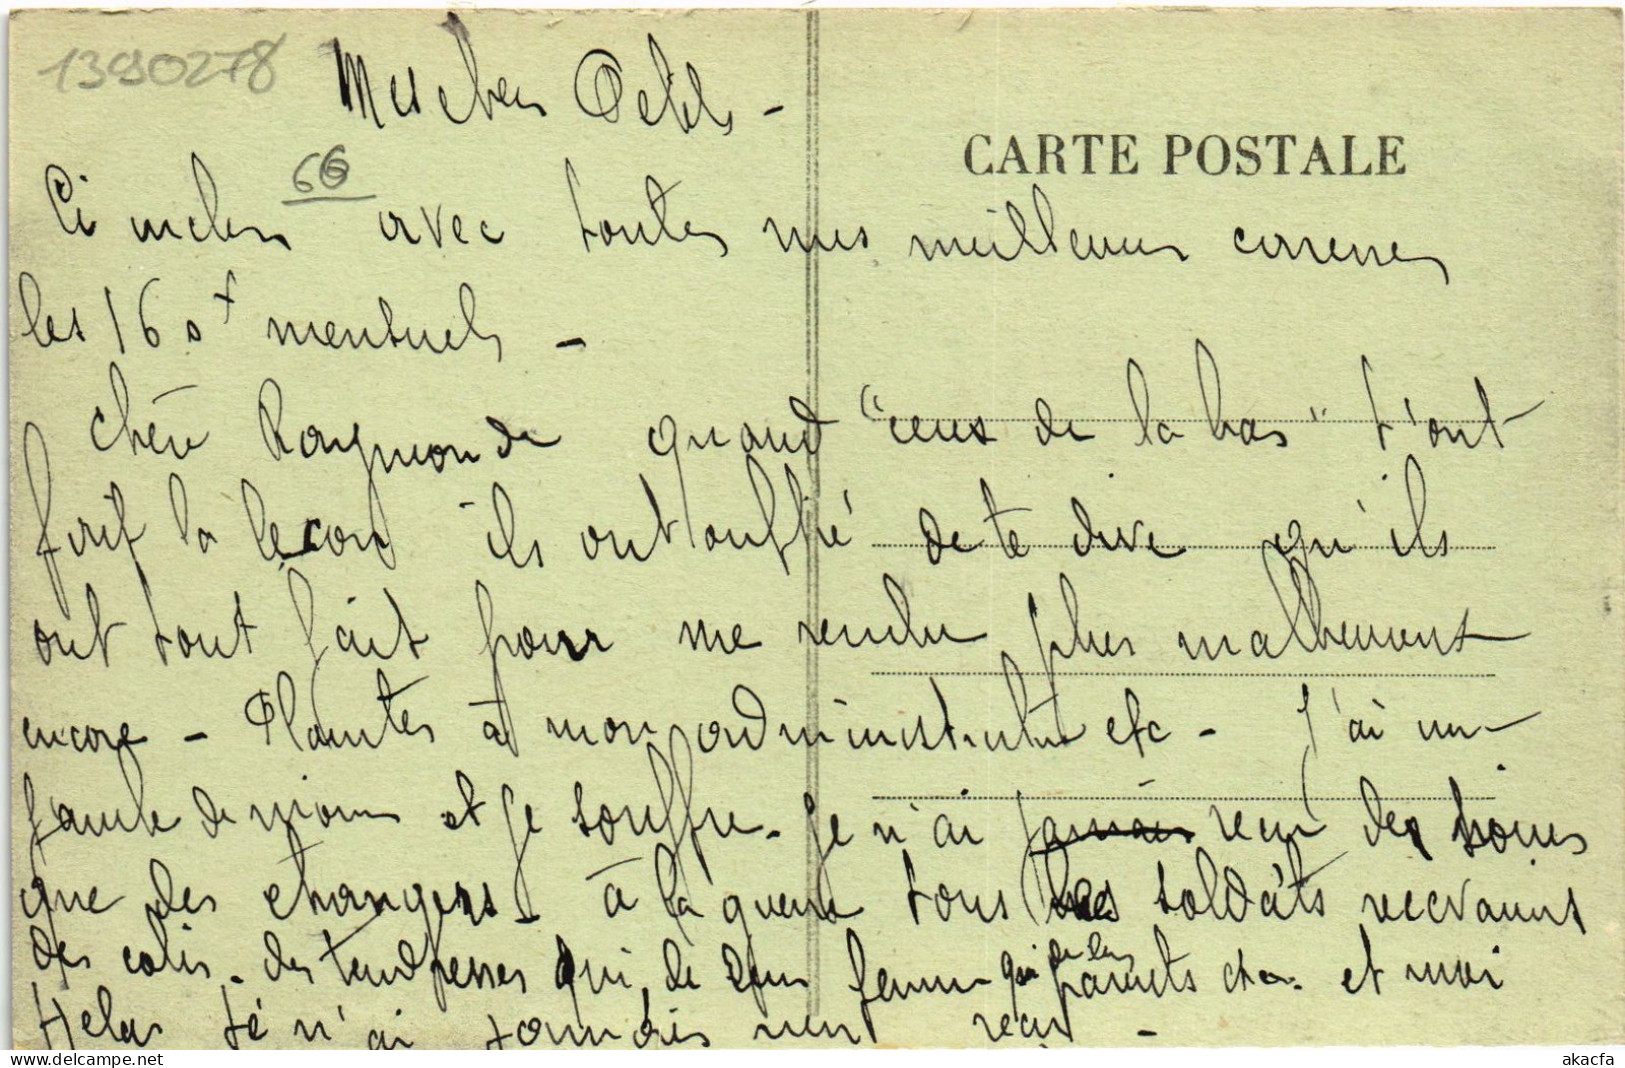 1390278
Mes chers Petits -
CARTE POSTALE
66
Ci inclus avec toutes mes meilleures caresses
les 160 f mensuels -
Chère Raymonde quand "ceux de la bas" t'ont
fait la leçon ils ont oublié de te dire qu'ils
ont tout fait pour me rendre plus malheureux
encore - Plaintes à mon administration etc - J'ai une
de moins et je souffre - Je n'ai jamais reçu des soins
que des etrangers - à la guerre tous les soldats recevaient
des colis - des tendresses qui de leur femme qui de leurs parents etc. et moi
Helas je n'ai jamais rien reçu -
akacfa
delcampe.net